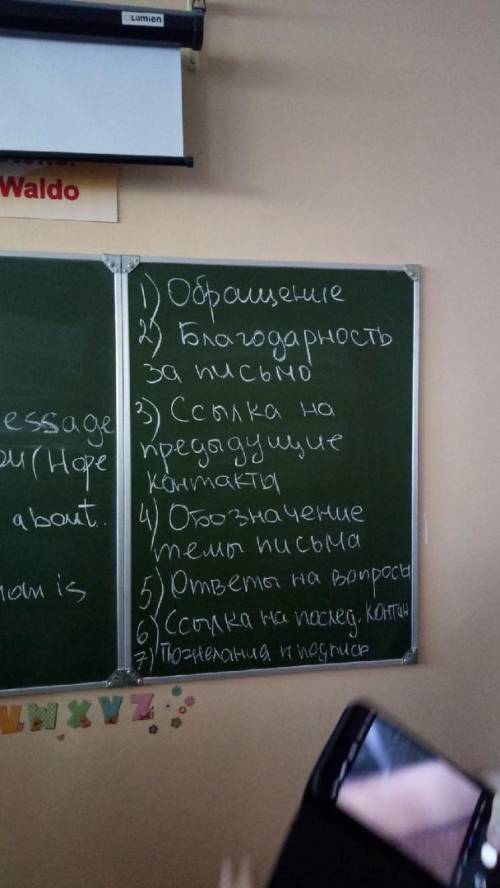 Lumien
Waldo
essage
(Hope
about.
is
1) Обращение
2) Благодарность
за письмо
3) Ссылка на
предыдущие
контакты
4) Обозначение
темы письма
5) Ответы на вопросы
6) Ссылка на послед. контак
7) Пожелания и подпись
V W X Y Z